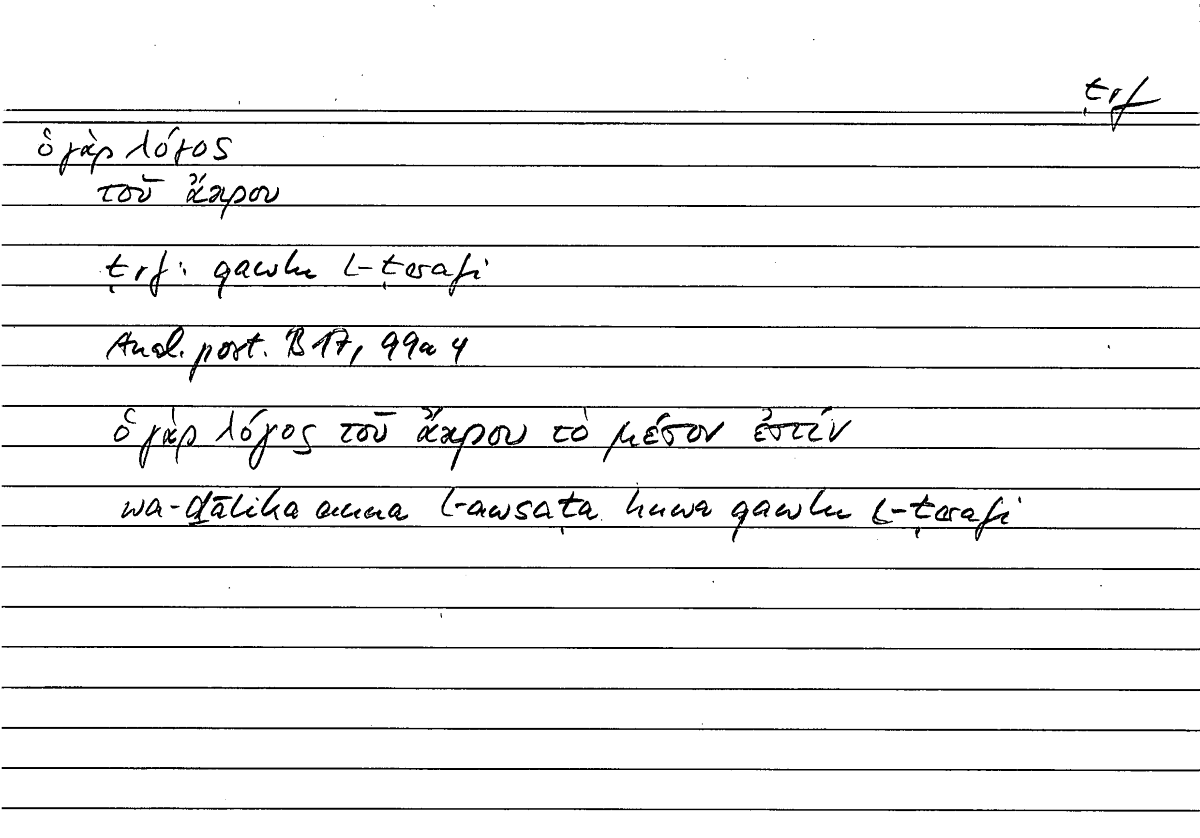 ṭrf
ὁ γὰρ λόγος
τοῦ ἄκρου
ṭrf: qawlu l-ṭarafi
Anal. post. B 17, 99a 4
ὁ γὰρ λόγος τοῦ ἄκρου τὸ μέσον ἐστίν
wa-ḏālika anna l-awsaṭa huwa qawlu l-ṭarafi